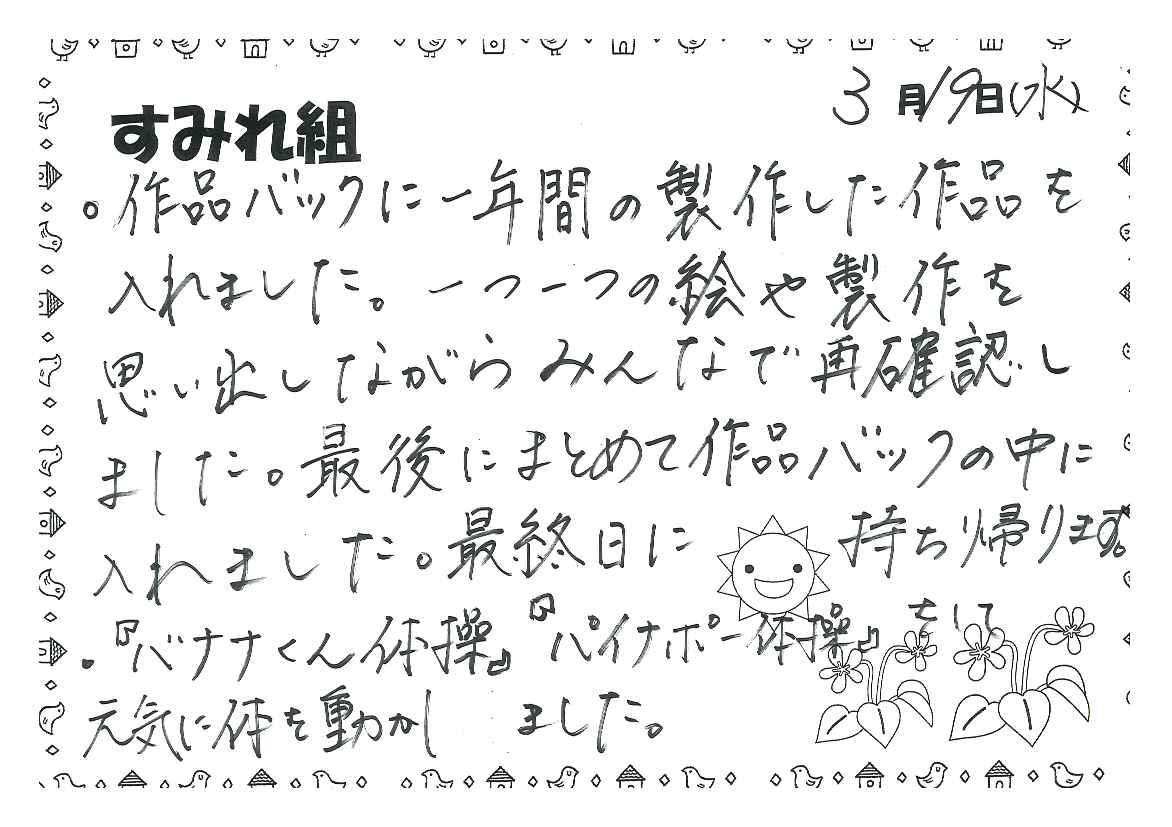 3月19日(水)
すみれ組
。作品バックに一年間の製作した作品を
入れました。一つ一つの絵や製作を
思い出しながらみんなで再確認し
ました。最後にまとめて作品バックの中に
入れました。最終日に 持ち帰ります。
。『バナナくん体操』『パイナポー体操』をして
元気に体を動かし ました。